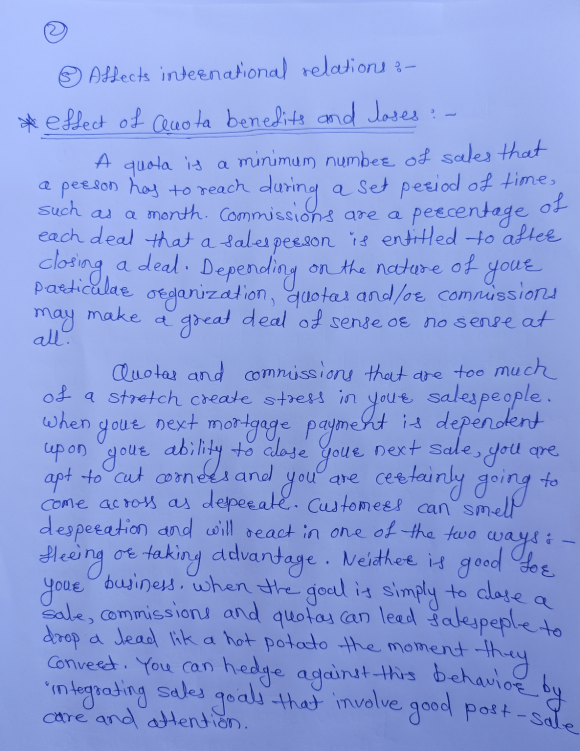 ②
⑤ Affects international relations :-
* effect of Quota benefits and loses : -
A quota is a minimum number of sales that
a person has to reach during a set period of time,
such as a month. Commissions are a percentage of
each deal that a salesperson is entitled to after
closing a deal. Depending on the nature of your
particular organization, quotas and/or commissions
may make a great deal of sense or no sense at
all.
Quotas and commissions that are too much
of a stretch create stress in your salespeople.
When your next mortgage payment is dependent
upon your ability to close your next sale, you are
apt to cut corners and you are certainly going to
come across as deperate. Customers can smell
desperation and will react in one of the two ways : -
fleeing or taking advantage. Neidher is good for
your business. When the goal is simply to close a
sale, commissions and quotas can lead salespeple to
drop a lead lik a hot potato the moment they
convert. You can hedge against this behavior by
integrating sales goals that involve good post-sale
care and attention.